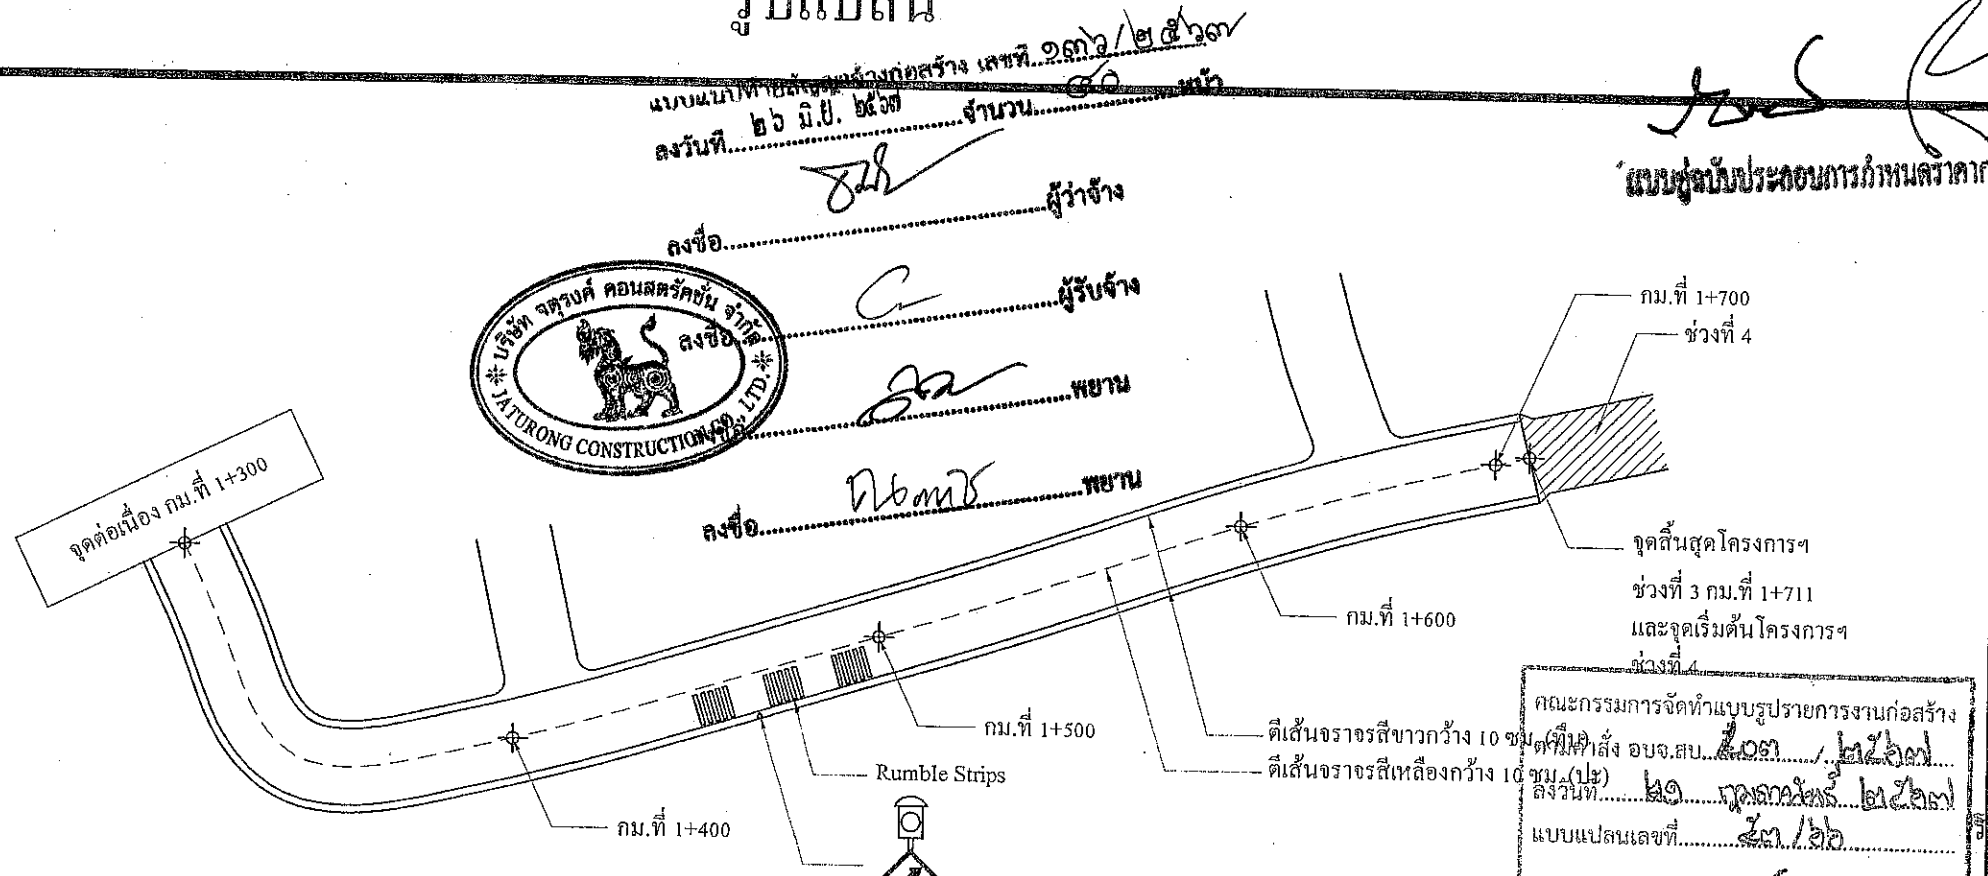 รูปแปลน
แบบแนบท้ายสัญญาจ้างก่อสร้าง เลขที่ ๑๓๖/๒๕๖๗
ลงวันที่ ๒๖ มิ.ย. ๒๕๖๗ จำนวน ๕๐ หน้า
ลงชื่อ ผู้ว่าจ้าง
ลงชื่อ ผู้รับจ้าง
พยาน
ลงชื่อ พยาน
บริษัท จตุรงค์ คอนสตรัคชั่น จำกัด
JATURONG CONSTRUCTION CO., LTD.
แบบคู่ฉบับประกอบการกำหนดราคาก
กม.ที่ 1+700
ช่วงที่ 4
จุดต่อเนื่อง กม.ที่ 1+300
จุดสิ้นสุดโครงการฯ
ช่วงที่ 3 กม.ที่ 1+711
และจุดเริ่มต้นโครงการฯ
ช่วงที่ 4
กม.ที่ 1+600
กม.ที่ 1+500
ตีเส้นจราจรสีขาวกว้าง 10 ซม. (ทึบ)
ตีเส้นจราจรสีเหลืองกว้าง 10 ซม. (ปะ)
Rumble Strips
กม.ที่ 1+400
คณะกรรมการจัดทำแบบรูปรายการงานก่อสร้าง
ตามคำสั่ง อบจ.สบ. ๕๐๓ / ๒๕๖๗
ลงวันที่ ๒๑ กุมภาพันธ์ ๒๕๖๗
แบบแปลนเลขที่ ๕๓/๖๖